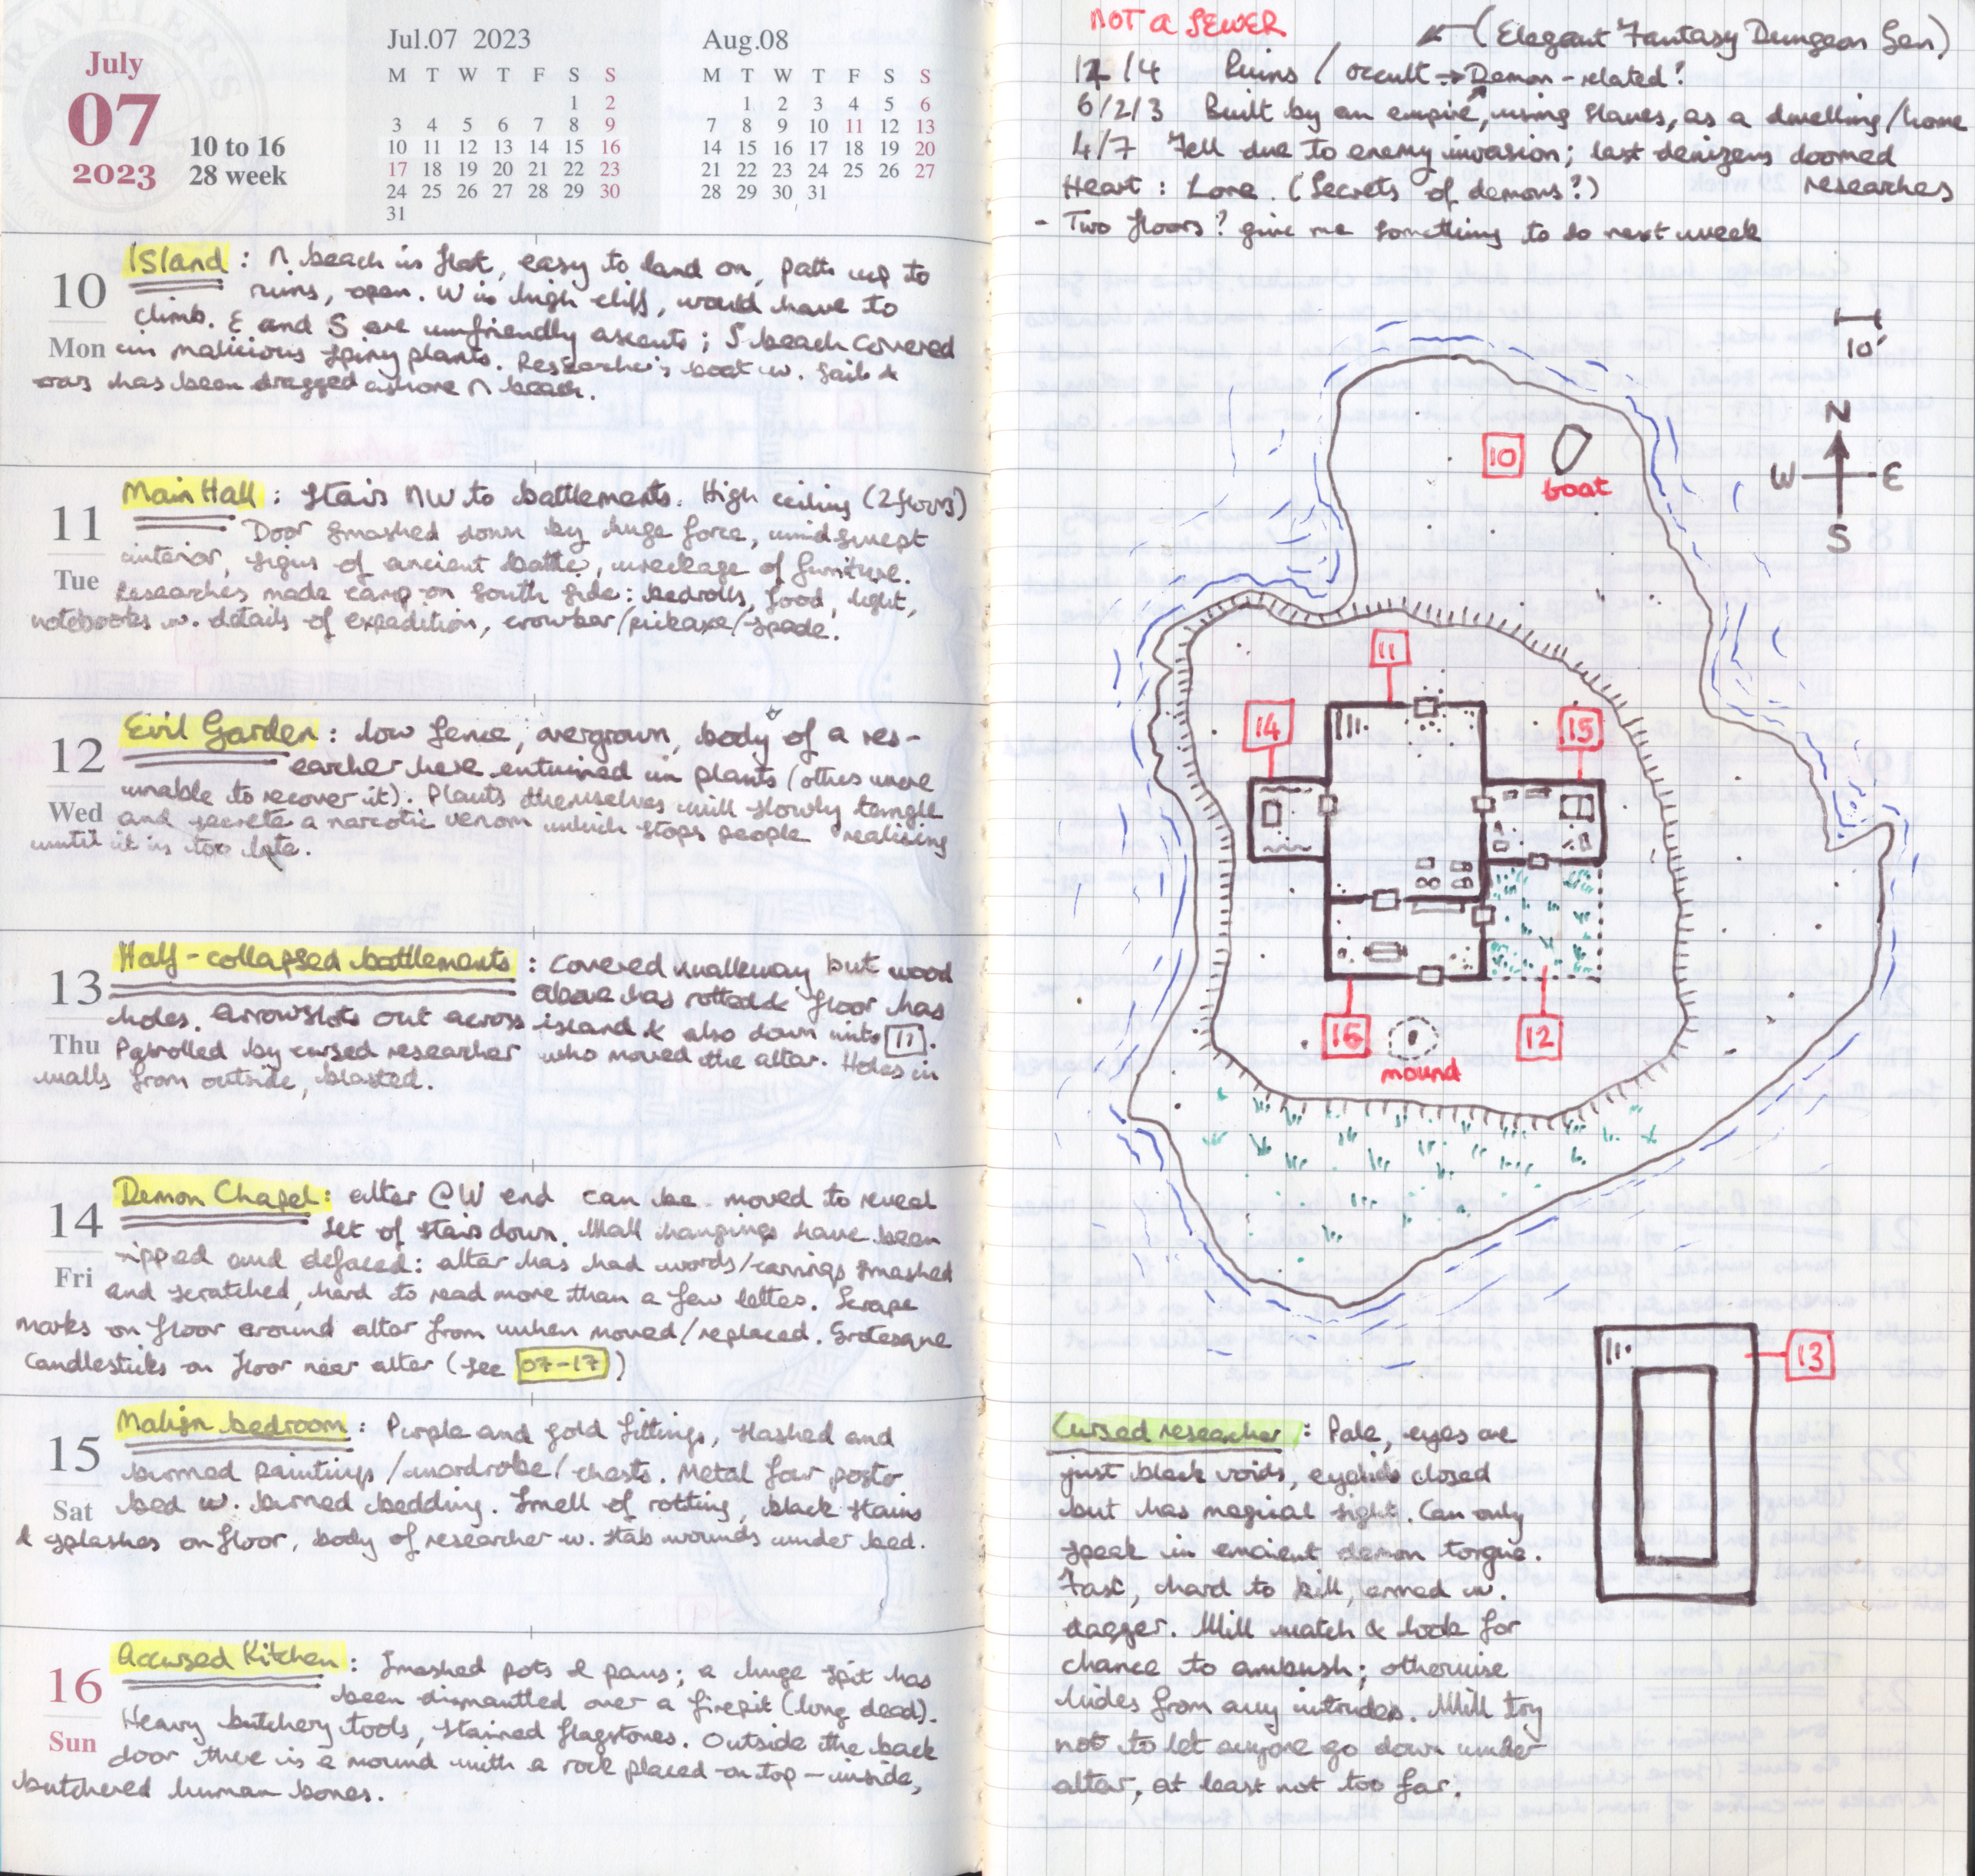 TRAVELER'S
July
07
2023
10 to 16
28 week
Jul.07 2023
M T W T F S S
1 2
3 4 5 6 7 8 9
10 11 12 13 14 15 16
17 18 19 20 21 22 23
24 25 26 27 28 29 30
31
Aug.08
M T W T F S S
1 2 3 4 5 6
7 8 9 10 11 12 13
14 15 16 17 18 19 20
21 22 23 24 25 26 27
28 29 30 31
10
Mon
Island: N. beach is flat, easy to land on, path up to
ruins, open. W is high cliff, would have to
climb. E and S are unfriendly ascents; S beach covered
in malicious spiny plants. Researcher's boat w. sail &
oars has been dragged ashore N beach.
11
Tue
Main Hall: Stairs NW to battlements. High ceiling (2 floors)
Door smashed down by huge force, windswept
interior, signs of ancient battle, wreckage of furniture.
Researchers made camp on South side: bedrolls, food, light,
notebooks w. details of expedition, crowbar/pickaxe/spade.
12
Wed
Evil Garden: low fence, overgrown, body of a res-
earcher here entwined in plants (others were
unable to recover it). Plants themselves will slowly tangle
and secrete a narcotic venom which stops people realising
until it is too late.
13
Thu
Half-collapsed battlements: Covered walkway but wood
above has rotted & floor has
holes. Arrowslots out across island & also down into 11.
Patrolled by cursed researcher who moved the altar. Holes in
walls from outside, blasted.
14
Fri
Demon Chapel: altar @ W end can be moved to reveal
set of stairs down. Wall hangings have been
ripped and defaced: altar has had words/carvings smashed
and scratched, hard to read more than a few letters. Scrape
marks on floor around altar from when moved/replaced. Grotesque
candlesticks on floor near altar (see 07-17)
15
Sat
Malign bedroom: Purple and gold fittings, slashed and
burned paintings/wardrobe/chests. Metal four poster
bed w. burned bedding. Smell of rotting, black stains
& splashes on floor, body of researcher w. stab wounds under bed.
16
Sun
Accursed Kitchen: Smashed pots & pans; a huge spit has
been dismantled over a firepit (long dead).
Heavy butchery tools, stained flagstones. Outside the back
door there is a mound with a rock placed on top – inside,
butchered human bones.
NOT A SEWER
(Elegant Fantasy Dungeon Gen)
12/4 Ruins / occult → Demon-related?
6/2/3 Built by an empire, using slaves, as a dwelling/home
4/7 Fell due to enemy invasion; last denizens doomed
researchers
Heart: Lore. (Secrets of demons?)
- Two floors? give me something to do next week
10'
N
W E
S
10
boat
11
14
15
16
12
mound
13
Cursed researcher: Pale, eyes are
just black voids, eyelids closed
but has magical sight. Can only
speak in ancient demon tongue.
Fast, hard to kill, armed w.
dagger. Will watch & look for
chance to ambush; otherwise
hides from any intruders. Will try
not to let anyone go down under
altar, at least not too far.